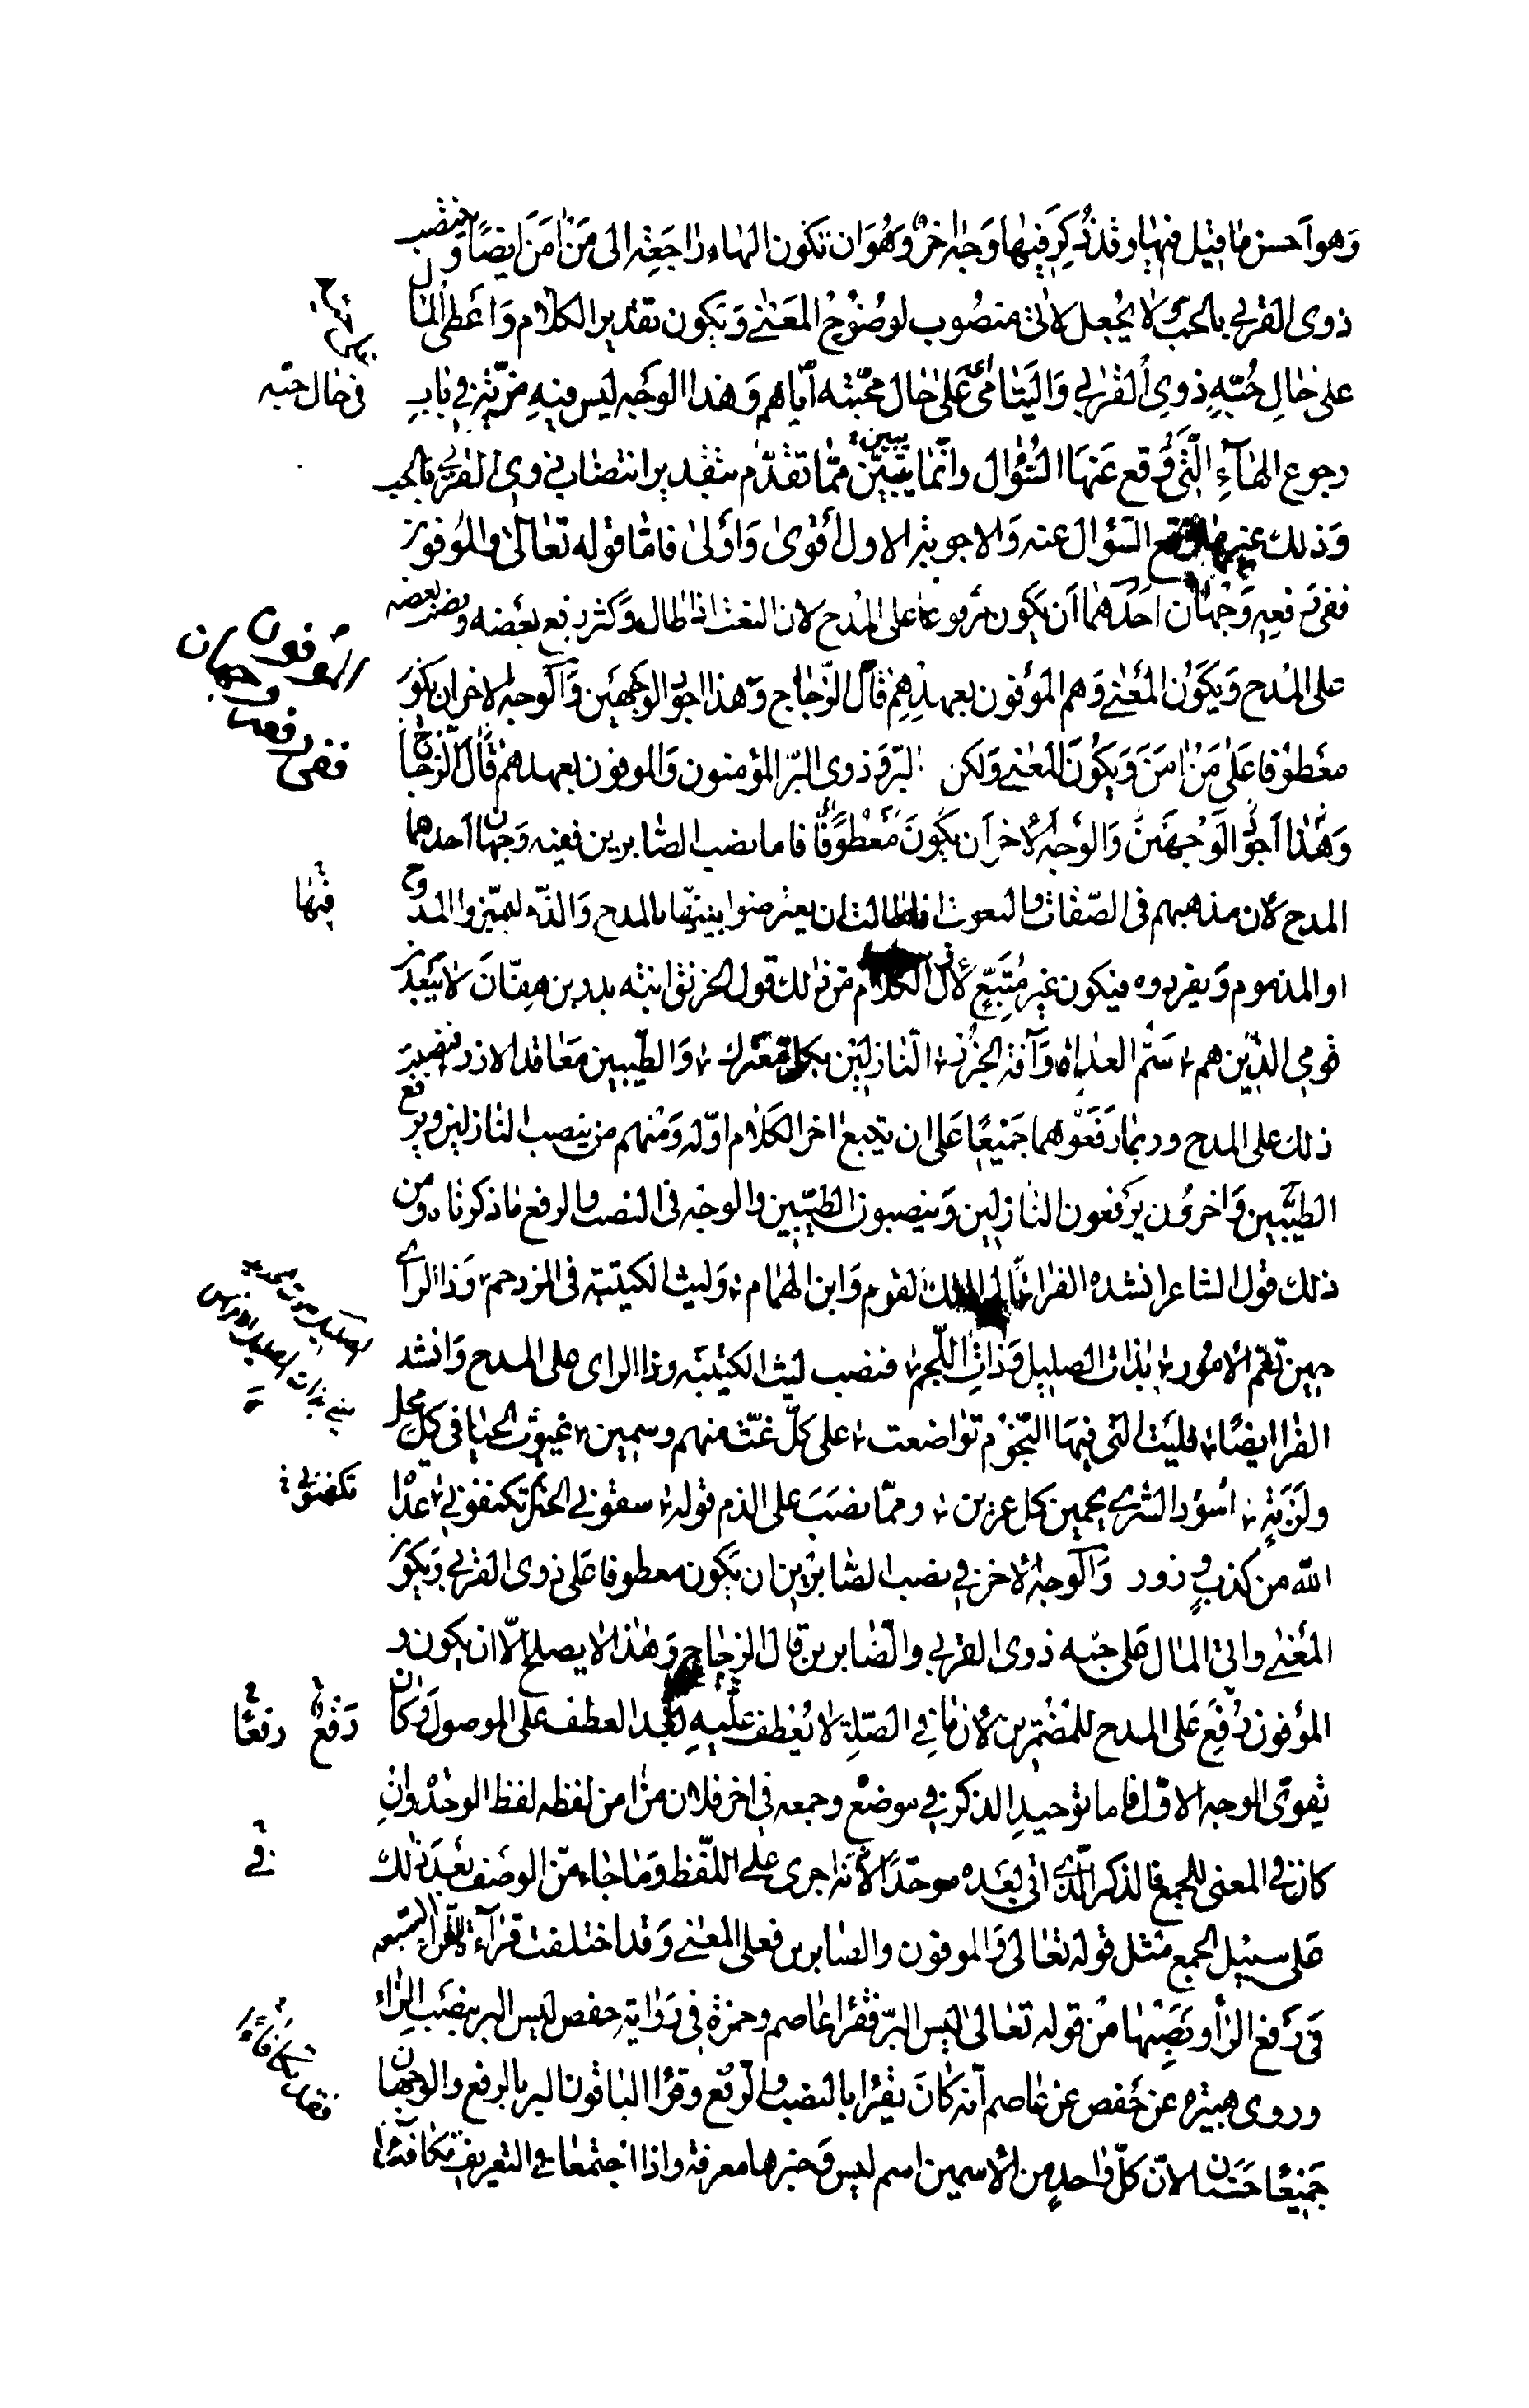 وهو احسن ما قيل فيها وقد ذكر فيها وجه اخر وهو ان تكون الهاء راجعة الى من امن ايضا وينتصب
ذوى القربى بالحب لا يجعل لاتى منصوب لوضوح المعنى ويكون تقدير الكلام واعطى المال
على حال حبه ذوى القربى واليتامى على حال محبته اياهم وهذا الوجه ليس فيه مزية في باب
في حال حبه
رجوع الهاء التى وقع عنها السؤال وانما يتبين مما تقدم بتقدير انتصاب ذوى القربى بالحب
وذلك غير ما وقع السؤال عنه والاجوبة الاول اقوى واولى فاما قوله تعالى والموفون
ففى رفعه وجهان احدهما ان يكون مرفوعا على المدح لان النعت اذا طال وكثر رفع بعضه ونصب بعضه
الموفون
ففى رفعه وجهان
على المدح ويكون المعنى وهم الموفون بعهدهم قال الزجاج وهذا اجود الوجهين والوجه الاخر ان يكون
معطوفا على من امن ويكون المعنى ولكن البر وذوى البر المؤمنون والموفون بعهدهم قال الزجاج
وهذا اجود الوجهين والوجه الاخر ان يكون معطوفا فاما نصب الصابرين ففيه وجهان احدهما
المدح لان مذهبهم في الصفات والنعوت اذا طالت ان يعترضوا بينها بالمدح والذم ليميزوا الممدوح
فيها
او المذموم ويفردوه فيكون غير متبع لاول الكلام من ذلك قول الخرنق ابنة بدر بن هفان لا يبعدن
قومى الذين هم سم العداة وآفة الجزر النازلين بكل معترك والطيبين معاقد الازر فنصب
ذلك على المدح وربما رفعوهما جميعا على ان يتبع اخر الكلام اوله ومنهم من ينصب النازلين ويرفع
الطيبين واخرون يرفعون النازلين وينصبون الطيبين والوجه في النصب والرفع ما ذكرناه ومن
ذلك قول الشاعر انشده الفراء الى الملك القرم وابن الهمام وليث الكتيبة في المزدحم وذا الراى
حين تغم الامور بذات الصليل وذات اللجم فنصب ليث الكتيبة وذا الراى على المدح وانشد
الفرا ايضا فليت التى فيها النجوم تواضعت على كل غث منهم وسمين غيوث الحيا في كل محل
ولزبة اسود الشرى يحمين كل عرين ومما نصب على الذم قوله سقونى الخمر تكنفونى عداة
تكنفونى
الله من كذب وزور والوجه الاخر في نصب الصابرين ان يكون معطوفا على ذوى القربى ويكون
المعنى واتى المال على حبه ذوى القربى والصابرين قال الزجاج وهذا لا يصلح الا ان يكون و
الموفون رفع على المدح للمضمرين لان ما في الصلة لا يعطف عليه بعد العطف على الموصول وكان
رفع رفعا
يقوى الوجه الاول فاما توحيد الذكر في موضع وجمعه في اخر فلان من امن لفظه لفظ الوحدة وان
كان في المعنى للجمع فالذكر الذى اتى بعده موحدا لانه اجرى على اللفظ وما جاء من الوصف بعد ذلك
في
على سبيل الجمع مثل قوله تعالى والموفون والصابرين فعلى المعنى وقد اختلفت قراءة القراء السبعة
في رفع الرا ونصبها من قوله تعالى ليس البر فقرا عاصم وحمزة في رواية حفص ليس البر بنصب الراء
وروى هبيرة عن حفص عن عاصم انه كان يقرا بالنصب والرفع وقرا الباقون البر بالرفع والوجهان
جميعا حسنان لان كل واحد من الاسمين اسم ليس وخبرها معرفة واذا اجتمعا في التعريف تكافئا